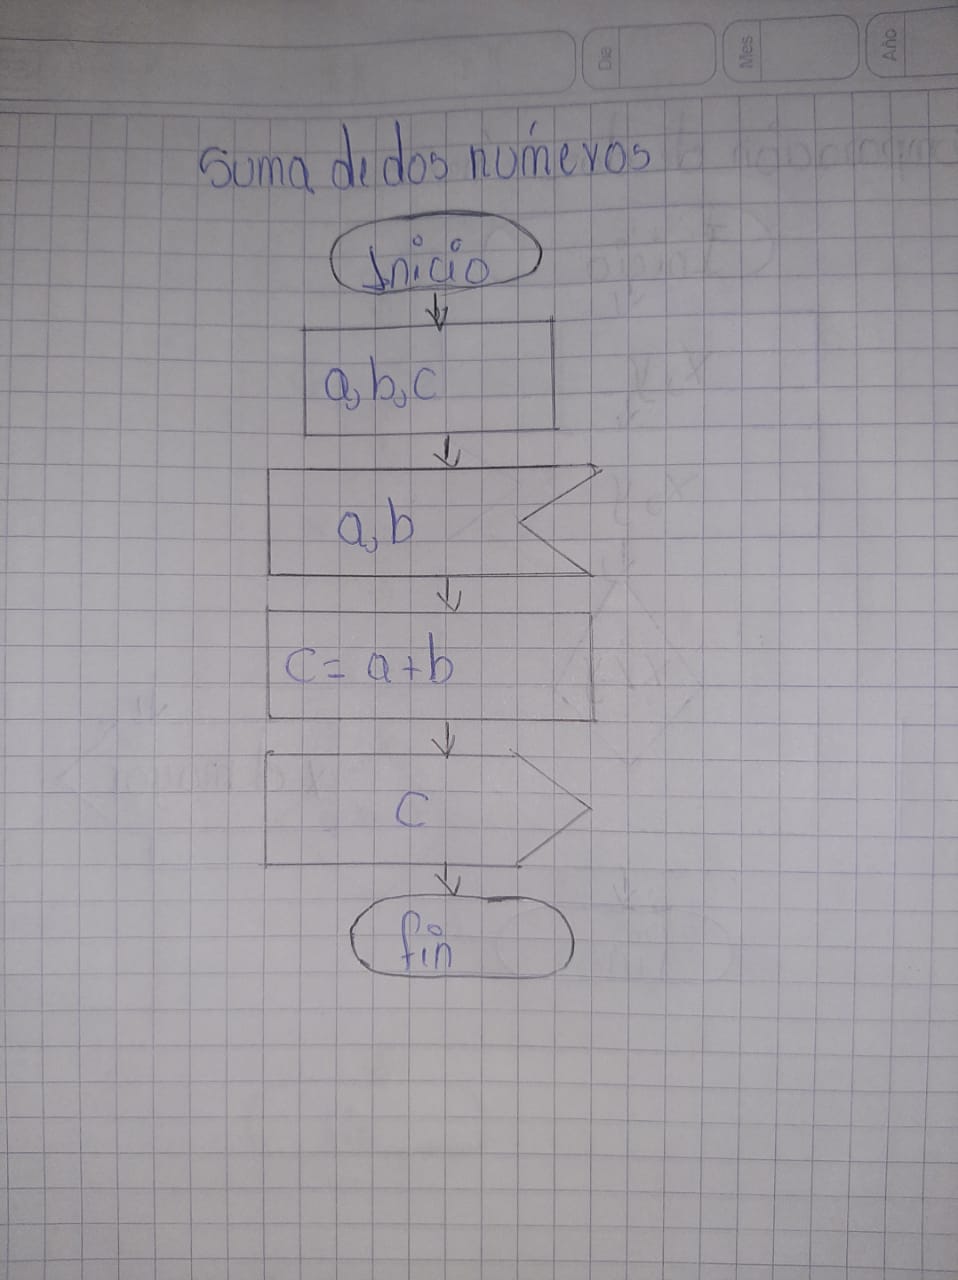 Dia
Mes
Año
Suma de dos números
Inicio
a, b, c
a, b
C = a + b
C
fin